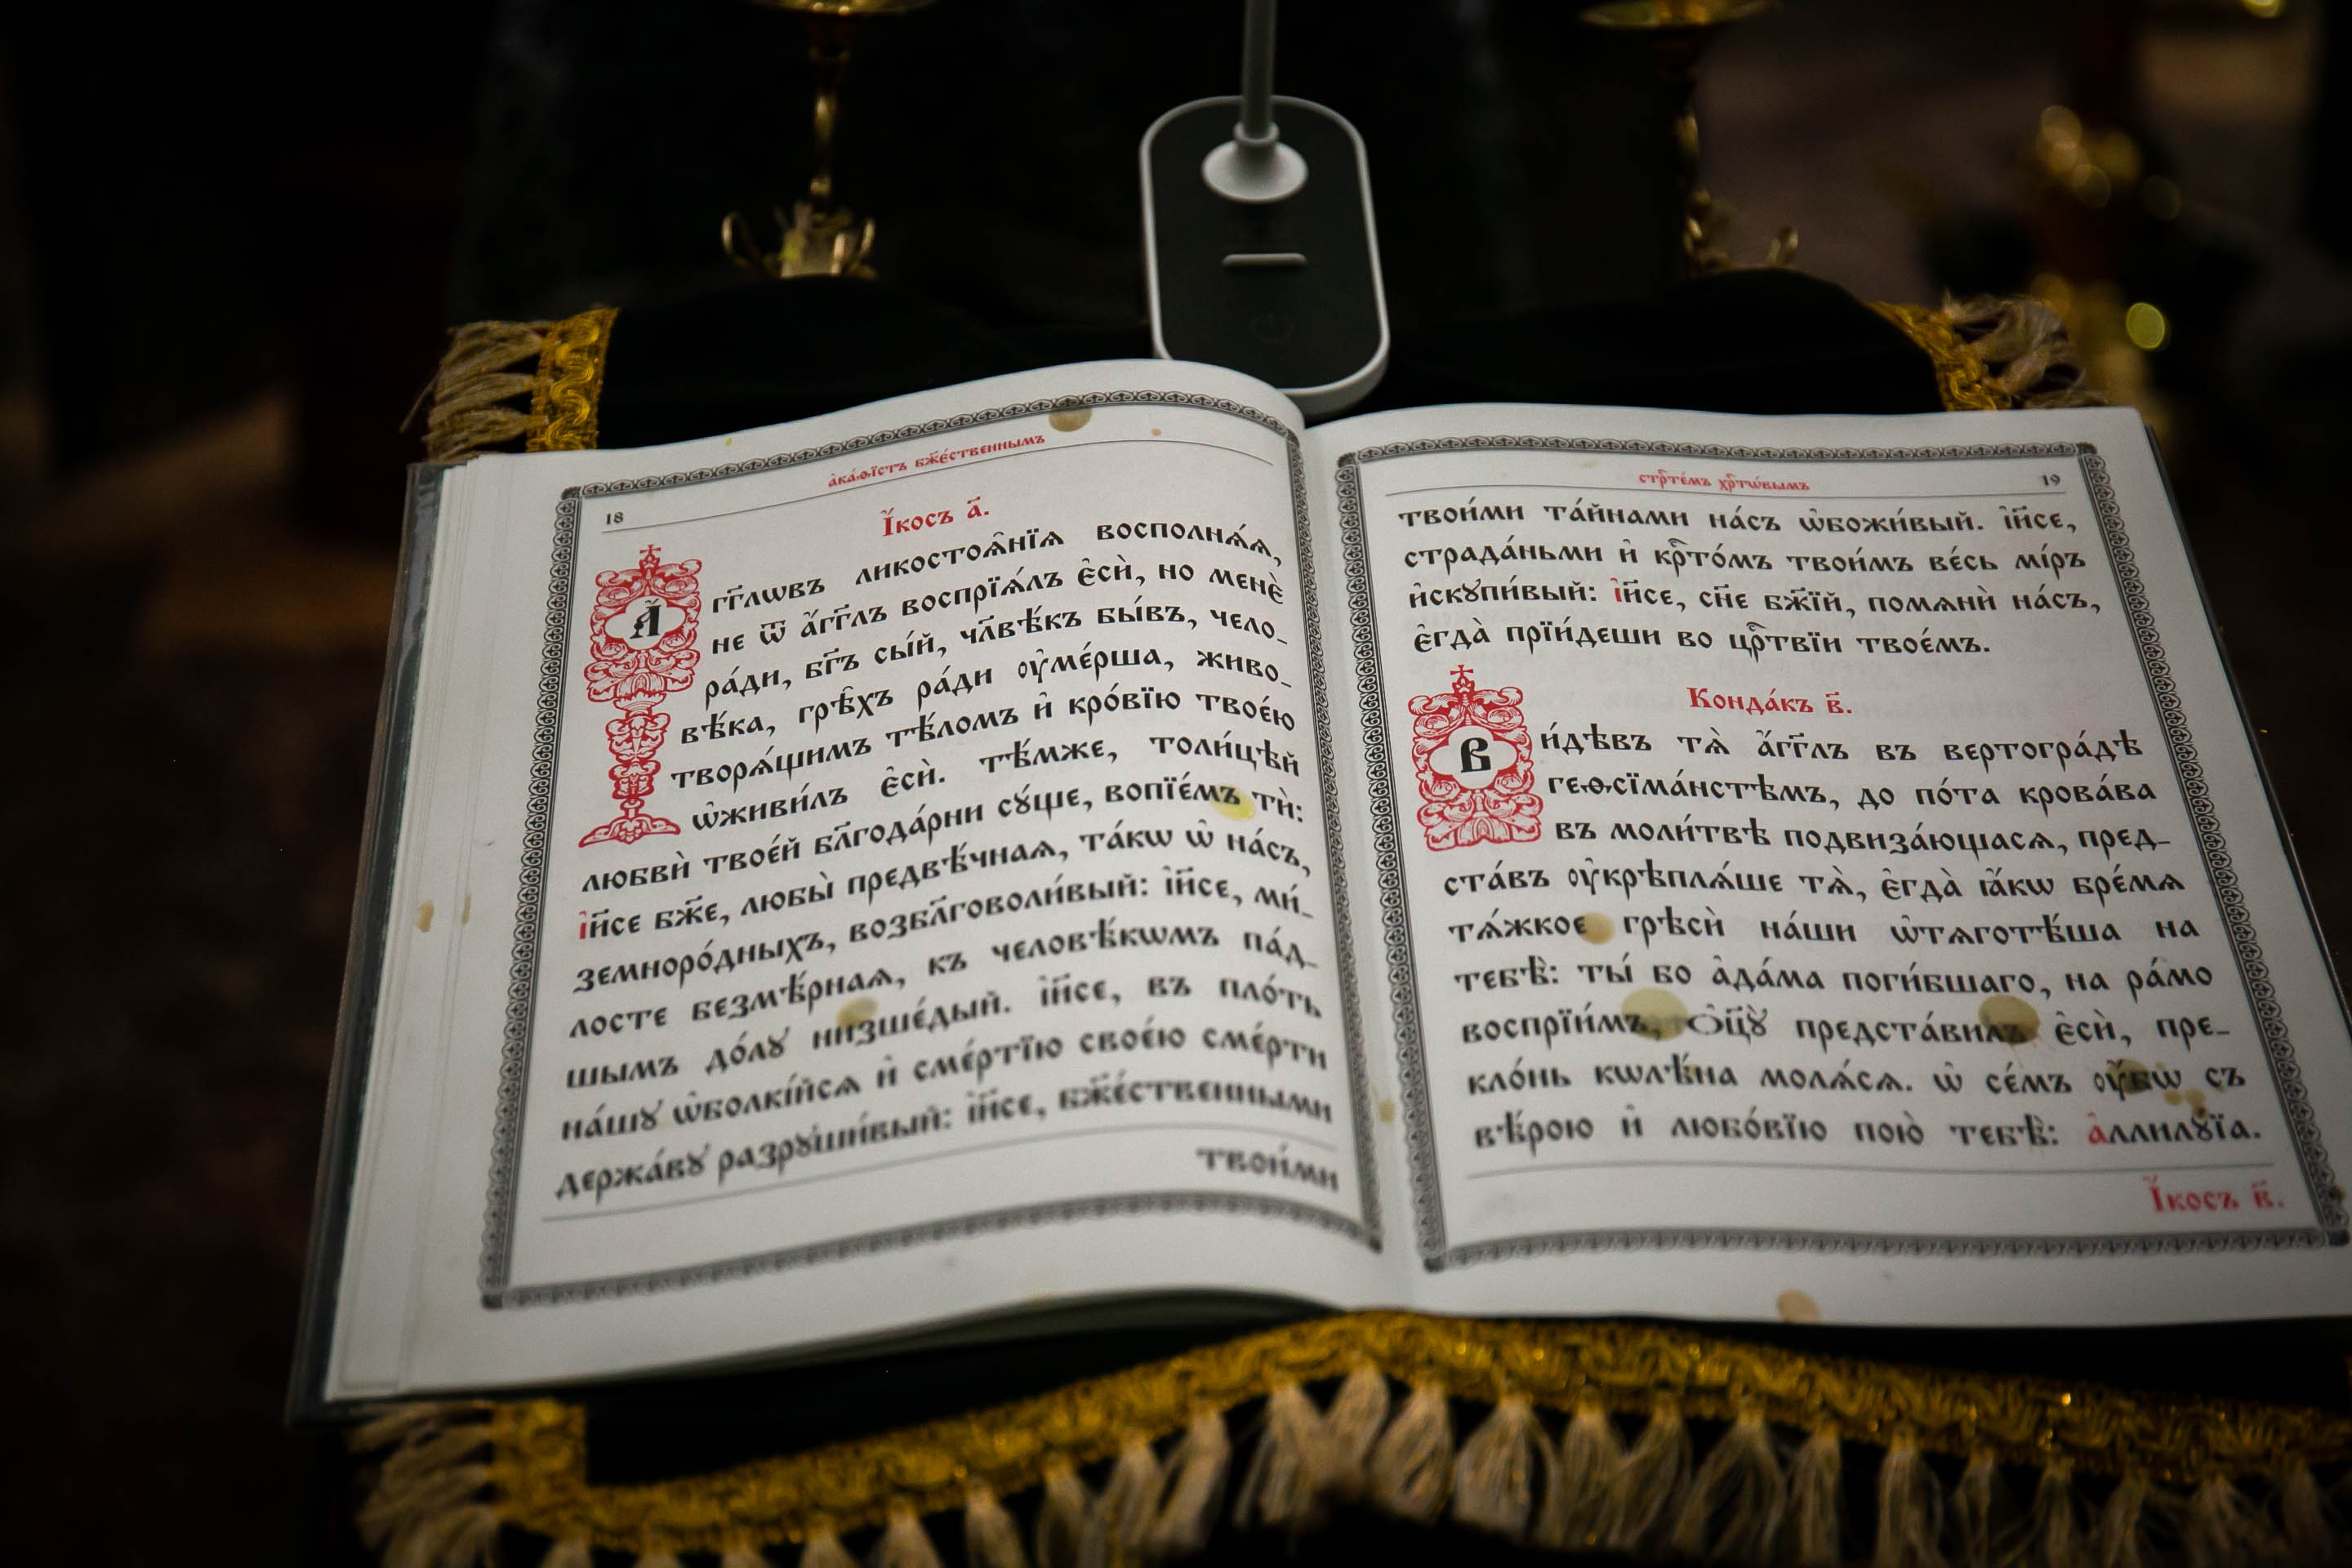 18
а҆ка́ѳїстъ бж҃е́ственнымъ
І҆́косъ а҃.
А҆́гг҃лѡвъ ликостоѧ̑нїѧ восполнѧ́ѧ,
не ѿ а҆́гг҃лъ воспрїѧ́лъ є҆сѝ, но менє̀
ра́ди, бг҃ъ сы́й, чл҃вѣ́къ бы́въ, чело_
вѣ́ка, грѣ̑хъ ра́ди оу҆ме́рша, живо_
творѧ́щимъ тѣ́ломъ и҆ кро́вїю твое́ю
ѡ҆живи́лъ є҆сѝ. тѣ́мже, толи́цѣй
любвѝ твое́й бл҃года́рни сꙋ́ще, вопїе́мъ тѝ:
і҆и҃се бж҃е, любы̀ предвѣ́чнаѧ, та́кѡ ѡ҆ на́съ,
земноро́дныхъ, возбл҃говоли́вый: і҆и҃се, ми́_
лосте безмѣ́рнаѧ, къ человѣ́кѡмъ па́д_
шымъ до́лꙋ низше́дый. і҆и҃се, въ пло́ть
на́шꙋ ѡ҆болкі́йсѧ и҆ сме́ртїю свое́ю сме́рти
держа́вꙋ разрꙋши́вый: і҆и҃се, бж҃е́ственными
твои́ми
стрⷭ҇те́мъ хрⷭ҇тѡ́вымъ
19
твои́ми та́йнами на́съ ѡ҆божи́вый. і҆и҃се,
страда́ньми и҆ крⷭ҇то́мъ твои́мъ ве́сь мі́ръ
и҆скꙋпи́вый: і҆и҃се, сн҃е бж҃їй, помѧнѝ на́съ,
є҆гда̀ прїи́деши во црⷭ҇твїи твое́мъ.
Конда́къ в҃.
Ви́дѣвъ тѧ̀ а҆́гг҃лъ въ вертогра́дѣ
геѳсїма́нстѣмъ, до по́та крова́ва
въ моли́твѣ подвиза́ющасѧ, пред_
ста́въ оу҆крѣплѧ́ше тѧ̀, є҆гда̀ ꙗ҆́кѡ бре́мѧ
тѧ́жкое грѣсѝ на́ши ѡ҆тѧготѣ́ша на
тебѣ̀: ты́ бо а҆да́ма поги́бшаго, на ра́мо
воспрїи́мъ, ѻ҆ц҃ꙋ̀ предста́вилъ є҆сѝ, пре_
кло́нь кѡлѣ́на молѧ́сѧ. ѡ҆ се́мъ оу҆́бѡ съ
вѣ́рою и҆ любо́вїю пою̀ тебѣ̀: а҆ллилꙋ́їа.
І҆́косъ в҃.